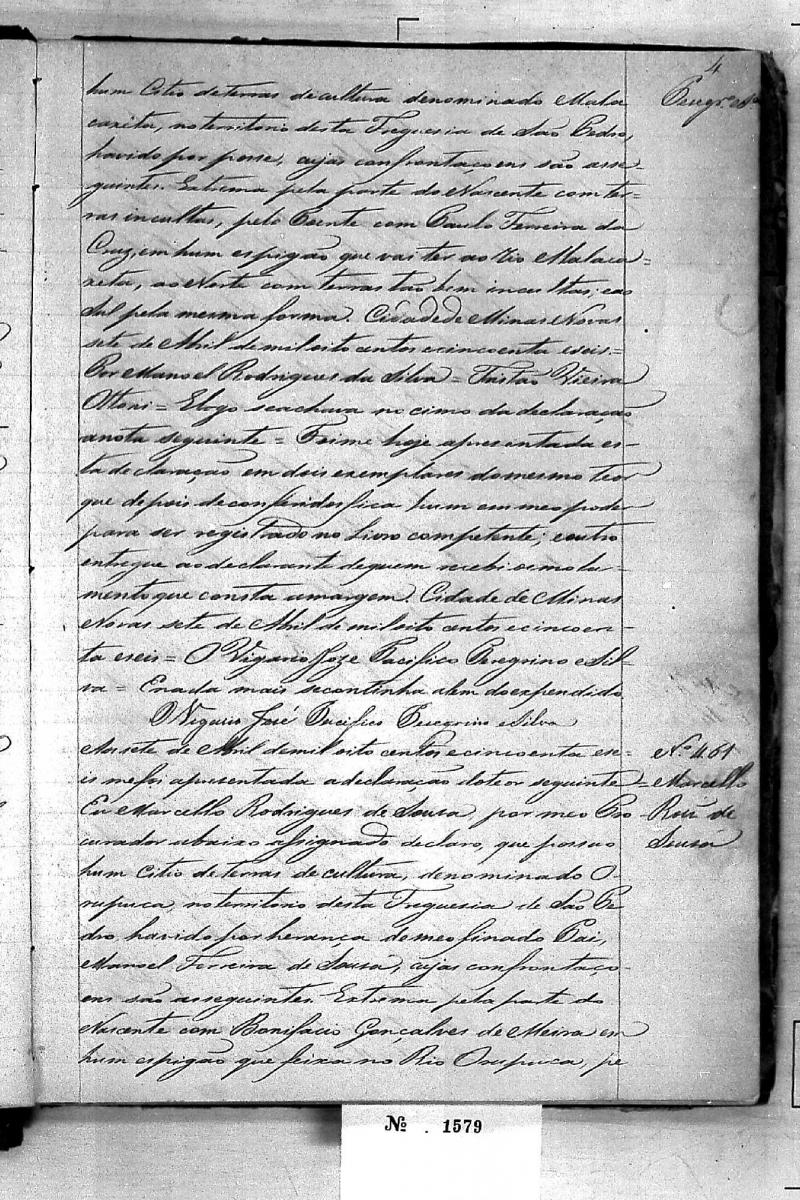 4
Peregr.º
hum Citio de terras de cultura denominado Mala
caxeta, no territorio desta Freguesia de São Pedro,
havido por posse, cujas confrontaçoens são asse-
guintes. Extrema pela parte do Nascente com ter-
ras incultas, pelo Poente com Paulo Ferreira da
Cruz, em hum espigão, que vai ter ao Rio Malaca=
xeta, ao Norte com terras tão bem incultas; e ao
Sul pela mesma forma. Cidade de Minas Novas
sete de Abril de mil oito centos e cincoenta e seis=
Por Manoel Rodrigues da Silva= Tristão Vieira
Ottoni= E logo se achava no cimo da declaração
a nota seguinte= Foi me hoje apresentada es-
ta declaração em dois exemplares do mesmo teor
que depois de conferidos fica hum em meo poder
para ser registrado no Livro competente; e outro
entregue ao declarante de quem recebi o imolu-
mento que consta a margem. Cidade de Minas
Novas sete de Abril de mil oito centos e cincoen-
ta e seis= O Vigario Joze Pacifico Peregrino e Sil-
va= E nada mais se continha alem do expendido
O Vigario José Pacifico Peregrino e Silva
Aos sete de Abril de mil oito centos e cincoenta e se-
is me foi apresentada a declaração do teor seguinte=
Eu Marcello Rodrigues de Sousa, por meo Pro
curador abaixo assignado declaro, que possuo
hum Citio de terras de cultura, denominado O-
rupuca, no territorio desta Freguesia de São Pe
dro havido por herança de meo finado Pai,
Manoel Ferreira de Sousa, cujas confrontaço-
ens são asseguintes. Extrema pela parte do
Nascente com Bonifacio Gonçalves de Meira em
hum espigão que feixa no Rio Orupuca, pe
Nº 461
Marcello
Roiz de
Sousa
Nº . 1579